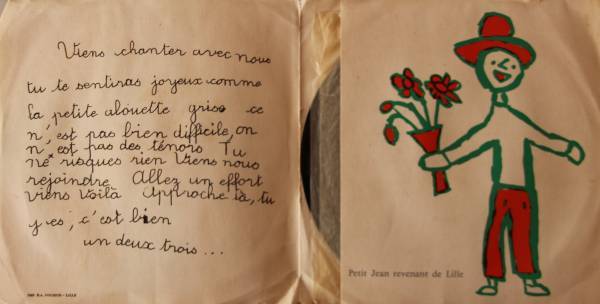 Viens chanter avec nous
tu te sentiras joyeux comme
la petite alouette grise ce
n'est pas bien difficile, on
n'est pas des ténors Tu
ne risques rien Viens nous
rejoindre Allez un effort
viens Voilà Approche là, tu
y es, c'est bien
un deux trois...
Petit Jean revenant de Lille